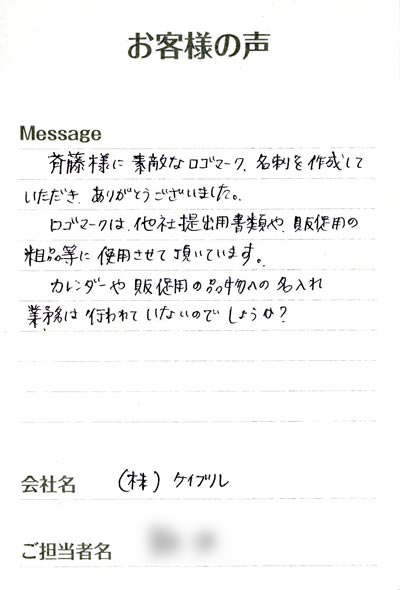 お客様の声
Message
斉藤様に 素敵なロゴマーク、名刺を作成して
いただき、ありがとうございました。
ロゴマークは、他社提出用書類や、販促用の
粗品等に 使用させて頂いています。
カレンダーや 販促用の品物への 名入れ
業務は 行われていないのでしょうか?
会社名 (株) ケイブリル
ご担当者名